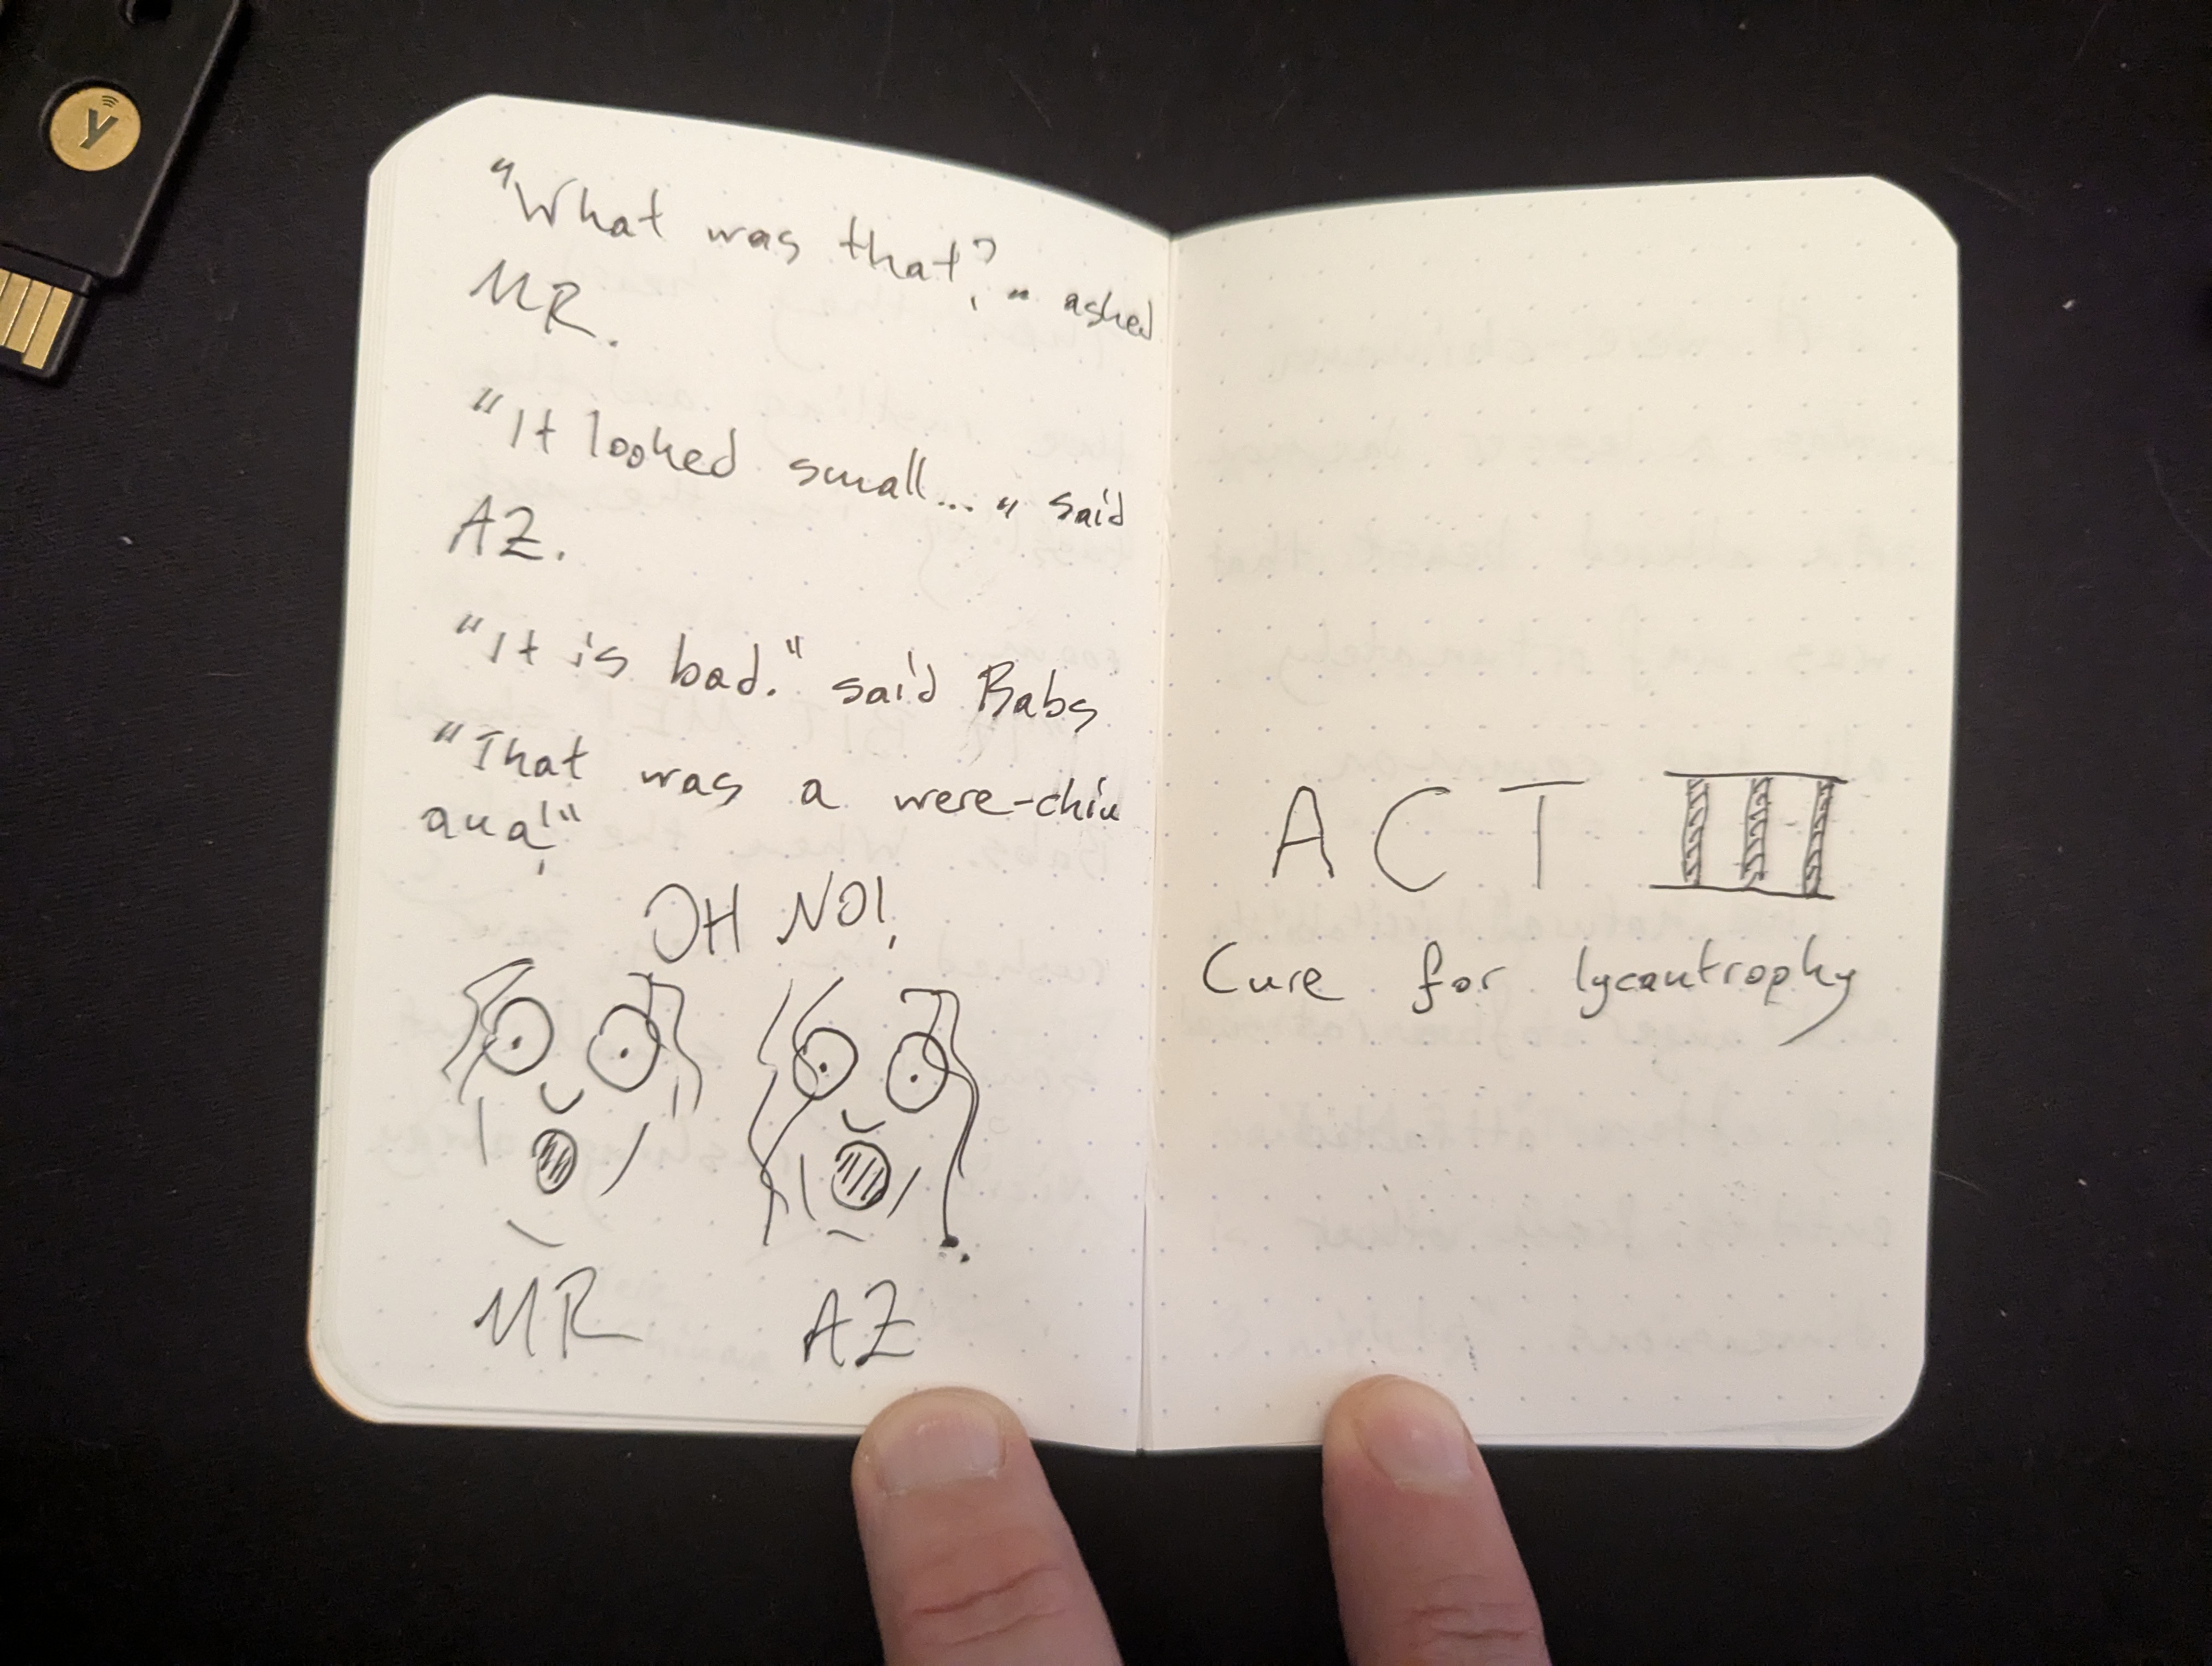 "What was that?" asked
MR.
"It looked small..." said
AZ.
"It is bad." said Babs
"That was a were-chiu
aua!"
OH NO!
MR AZ
ACT III
Cure for lycantrophy
y